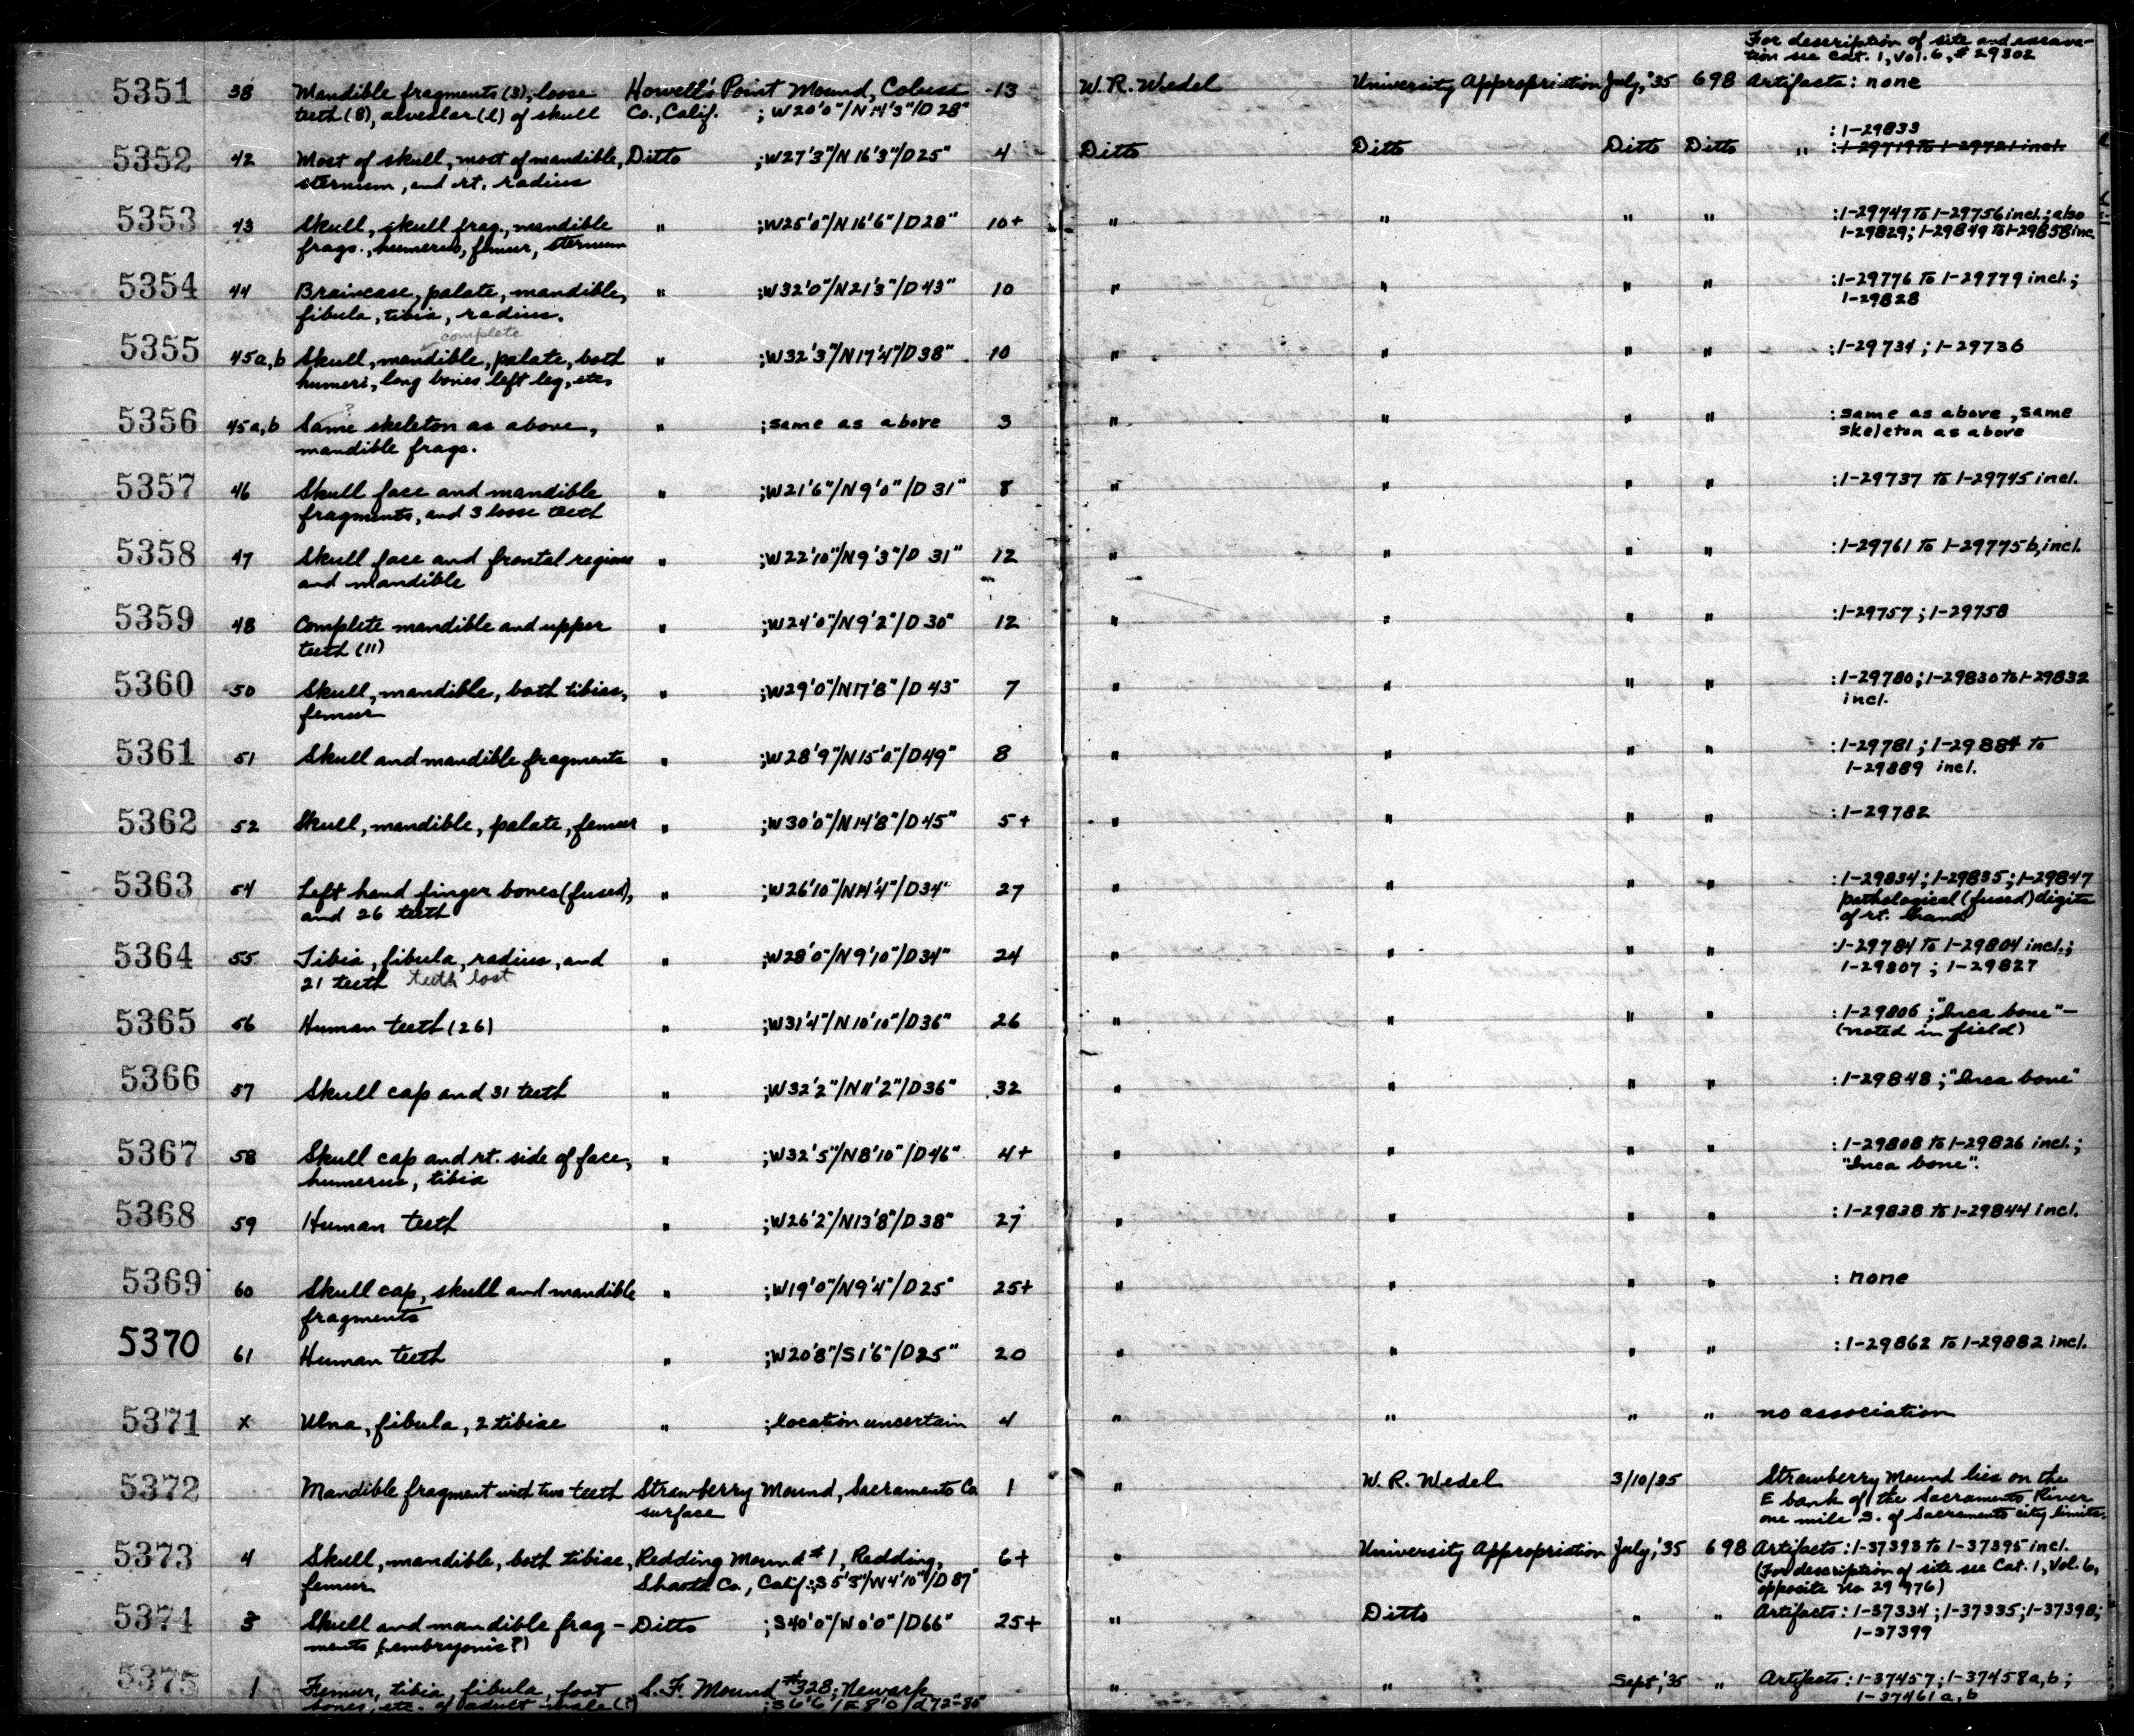 For description of site and excava-
tion see Cat. 1, Vol. 6, # 29302
5351 38 Mandible fragments (3), loose Howell's Point Mound, Colusa 13 W. R. Wedel University Appropriation July, '35 698 Artifacts: none
teeth (8), alveolar (2) of skull Co., Calif. ; W20'0"/N14'3"/D28"
: 1-29833
5352 42 Most of skull, most of mandible, Ditto ;W27'3"/N16'3"/D25" 4 Ditto Ditto Ditto Ditto " : 1-29719 to 1-29721 incl.
sternum, and rt. radius
5353 43 Skull, skull frag., mandible " ;W25'0"/N16'6"/D28" 10+ " " " " :1-29747 to 1-29756 incl.; also
frags., humerus, femur, sternum 1-29829; 1-29849 to 1-29858 inc.
5354 44 Braincase, palate, mandible, " ;W32'0"/N21'3"/D43" 10 " " " " :1-29776 to 1-29779 incl.;
fibula, tibia, radius. 1-29828
complete
5355 45a,b Skull, mandible, palate, both " ;W32'3"/N17'4"/D38" 10 " " " " :1-29734; 1-29736
humeri, long bones left leg, etc.
?
5356 45a,b Same skeleton as above, " ;same as above 3 " " " " :same as above, same
mandible frags. skeleton as above
5357 46 Skull face and mandible " ;W21'6"/N9'0"/D31" 8 " " " " :1-29737 to 1-29745 incl.
fragments, and 3 loose teeth
5358 47 Skull face and frontal regions " ;W22'10"/N9'3"/D31" 12 " " " " :1-29761 to 1-29775b, incl.
and mandible
5359 48 Complete mandible and upper " ;W24'0"/N9'2"/D30" 12 " " " " :1-29757; 1-29758
teeth (11)
5360 50 Skull, mandible, both tibias, " ;W29'0"/N17'8"/D43" 7 " " " " :1-29780; 1-29830 to 1-29832
femur incl.
5361 51 Skull and mandible fragments " ;W28'9"/N15'0"/D49" 8 " " " " :1-29781; 1-29884 to
1-29889 incl.
5362 52 Skull, mandible, palate, femur " ;W30'0"/N14'8"/D45" 5+ " " " " :1-29782
5363 54 Left hand finger bones (fused), " ;W26'10"/N14'4"/D34" 27 " " " " :1-29834; 1-29835; 1-29847
and 26 teeth pathological (fused) digits
of rt. hand
5364 55 Tibia, fibula, radius, and " ;W28'0"/N9'10"/D34" 24 " " " " :1-29784 to 1-29804 incl.;
21 teeth teeth lost 1-29807; 1-29827
5365 56 Human teeth (26) " ;W31'4"/N10'10"/D36" 26 " " " " :1-29806; "Inca bone"-
(noted in field)
5366 57 Skull cap and 31 teeth " ;W32'2"/N11'2"/D36" 32 " " " " :1-29848; "Inca bone"
5367 58 Skull cap and rt. side of face, " ;W32'5"/N8'10"/D46" 4+ " " " " :1-29808 to 1-29826 incl.;
humerus, tibia "Inca bone".
5368 59 Human teeth " ;W26'2"/N13'8"/D38" 27 " " " " :1-29838 to 1-29844 incl.
5369 60 Skull cap, skull and mandible " ;W19'0"/N9'4"/D25" 25+ " " " " : none
fragments
5370 61 Human teeth " ;W20'8"/S1'6"/D25" 20 " " " " :1-29862 to 1-29882 incl.
5371 x Ulna, fibula, 2 tibiae " ;location uncertain 4 " " " " no association
5372 Mandible fragment with two teeth Strawberry Mound, Sacramento Co 1 " W. R. Wedel 3/10/35 Strawberry Mound lies on the
surface E bank of the Sacramento River
one mile S. of Sacramento city limits.
5373 4 Skull, mandible, both tibiae, Redding Mound #1, Redding, 6+ " University Appropriation July, '35 698 Artifacts: 1-37393 to 1-37395 incl.
femur Shasta Co., Calif.;S5'3"/W4'10"/D87" (For description of site see Cat. 1, Vol. 6,
opposite No 29976)
5374 3 Skull and mandible frag- Ditto ;S40'0"/W0'0"/D66" 25+ " Ditto " " Artifacts: 1-37334; 1-37335; 1-37398;
ments (embryonic?) 1-37399
5375 1 Femur, tibia, fibula, foot S.F. Mound #328; Newark " " Sept, '35 " Artifacts: 1-37457; 1-37458a,b;
bones, etc. of adult male (?) ;S6'6"/E8'0"/d72"-80" 1-37461a,b